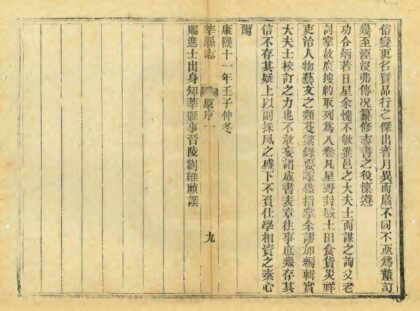 俗變更名賢品行之傑出者月異而歲不同不亟為釐訂
幾至湮沒弗傳况纂修志書之役憲遵
功令炳若日星余愧不敏進邑之大夫士而謀之詢父老
討掌故廣搜約取列為八卷凡星野封域土田食貨災祥
吏治人物藝文之類芟蕪錄要瞭然指掌余謬加輯實
大夫士校訂之力也不敢妄謂成書表章往事庶幾存其
信不存其疑上以副採風之盛下不負仕學相資之素心
爾
康熙十一年壬子仲冬
賜進士出身知莘縣事晉陵劉維禎撰
莘縣志
原序一
九